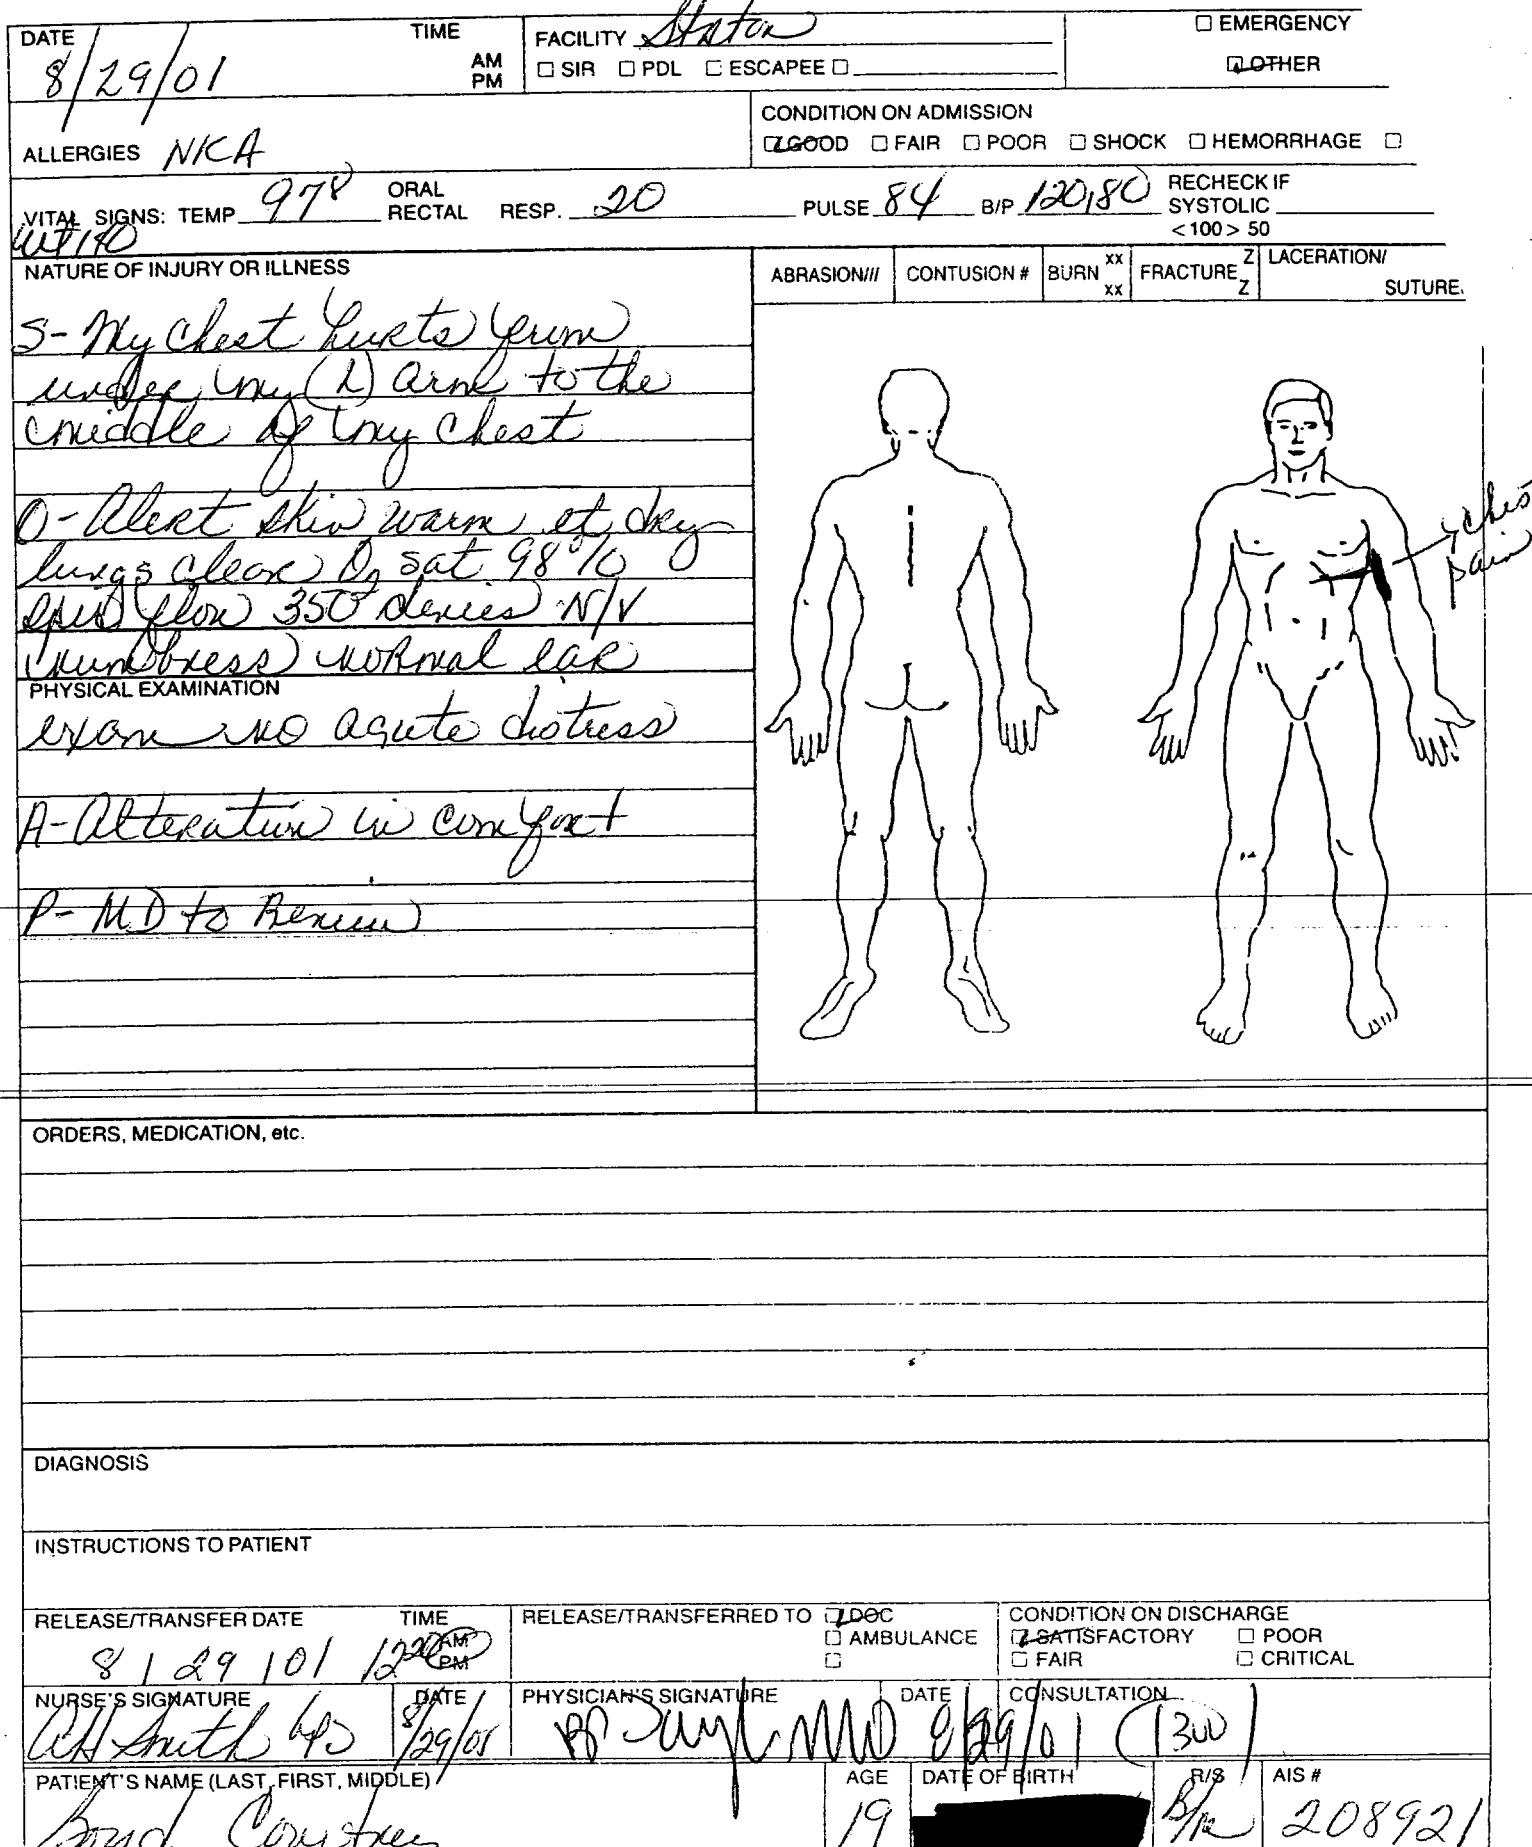 DATE 8/29/01 TIME AM PM
FACILITY Staton
☐ SIR ☐ PDL ☐ ESCAPEE ☐
☐ EMERGENCY
☑ OTHER
ALLERGIES NKA
CONDITION ON ADMISSION
☑ GOOD ☐ FAIR ☐ POOR ☐ SHOCK ☐ HEMORRHAGE ☐
VITAL SIGNS: TEMP 97⁸ ORAL RECTAL RESP. 20 PULSE 84 B/P 120/80 RECHECK IF SYSTOLIC <100> 50
wt 140
NATURE OF INJURY OR ILLNESS
ABRASION/// CONTUSION # BURN xx xx FRACTURE Z Z LACERATION/ SUTURE
S- My chest hurts from
under my (L) arm to the
middle of my chest
O- Alert skin warm et dry
lungs clear O₂ sat 98%
flow 350 denies N/V
numbness normal ear
PHYSICAL EXAMINATION
exam no acute distress
A- Alteration in comfort
P- MD to Review
ches
pain
ORDERS, MEDICATION, etc.
DIAGNOSIS
INSTRUCTIONS TO PATIENT
RELEASE/TRANSFER DATE TIME
8 / 29 / 01 12²⁰ AM PM
RELEASE/TRANSFERRED TO ☑ DOC
☐ AMBULANCE
☐
CONDITION ON DISCHARGE
☑ SATISFACTORY ☐ POOR
☐ FAIR ☐ CRITICAL
NURSE'S SIGNATURE DATE
Smith 8/29/01
PHYSICIAN'S SIGNATURE DATE CONSULTATION
MD 8/29/01 1300
PATIENT'S NAME (LAST, FIRST, MIDDLE)
Boyd Courtney
AGE 19
DATE OF BIRTH
R/S B/m
AIS # 208921